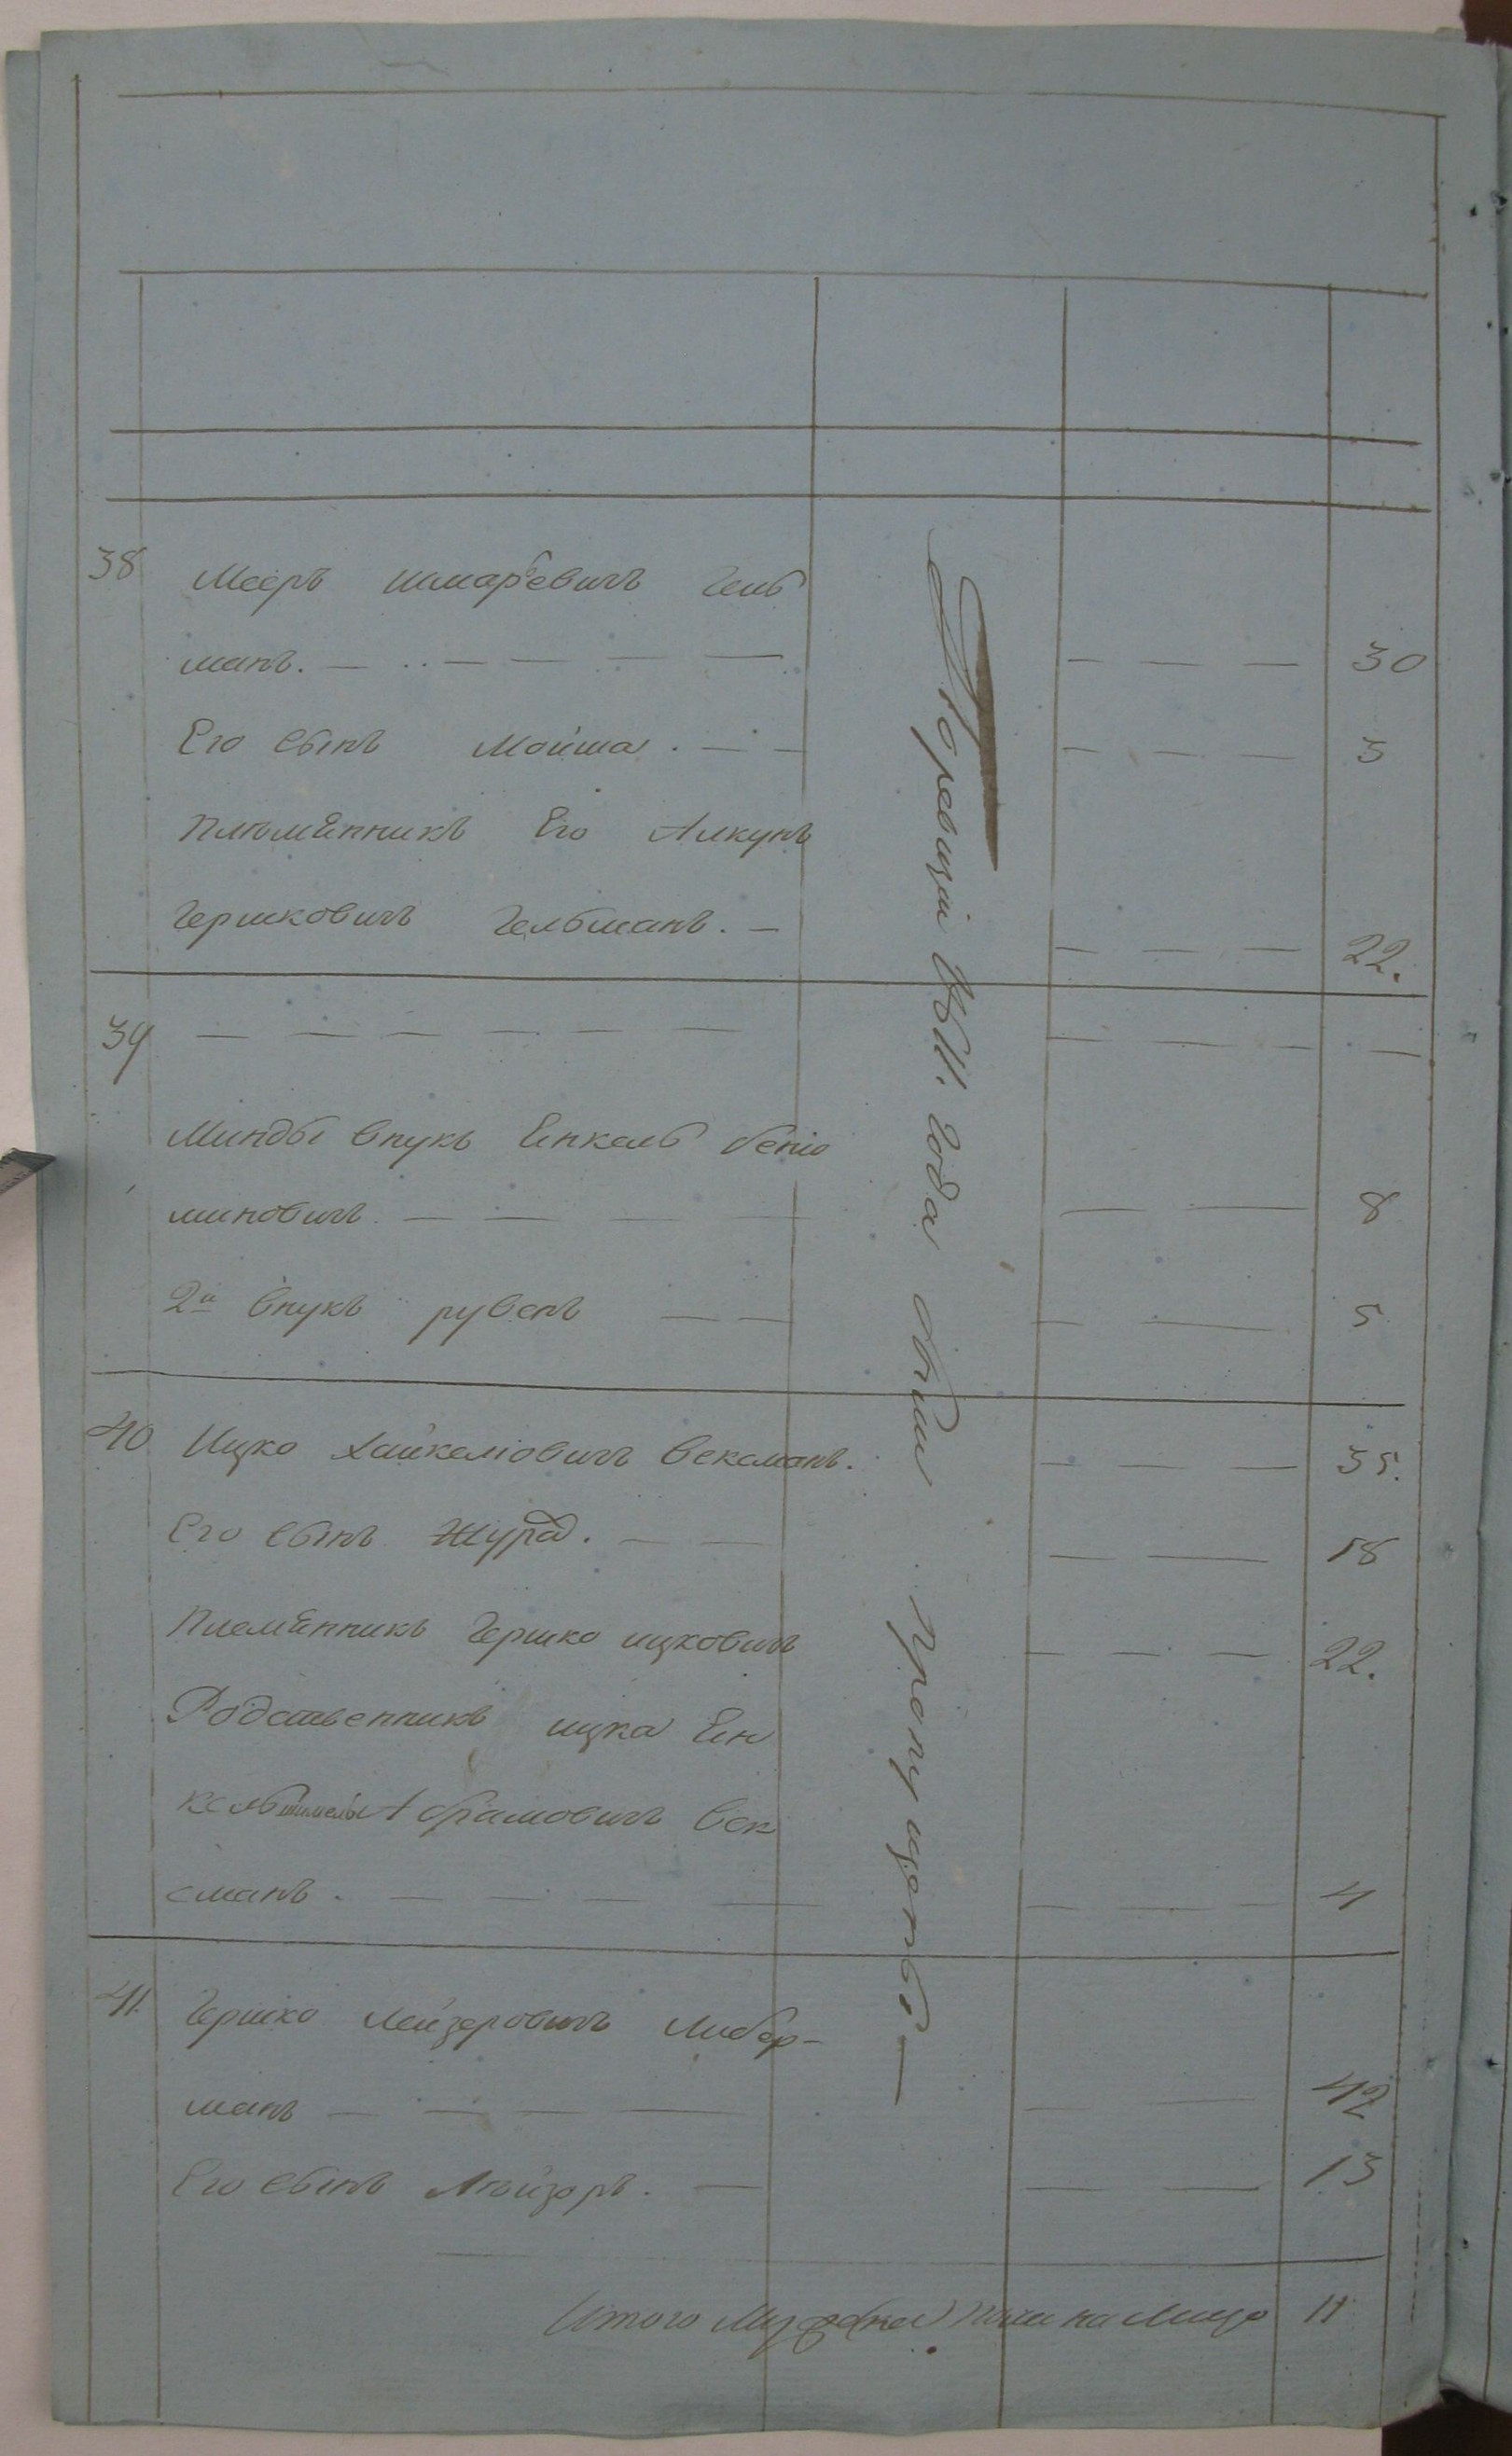 38 Мееръ Шмарьевичъ Гель
манъ. — — — — — — — — 30
Его сынъ Мойша. — — — — — 5
Племѣнникъ Его Алкунъ
Гершковичъ Гельманъ. — — — — 22.
39 — — — — — — — — — —
Минды внукъ Енкель бенiо
миновичъ. — — — — — — 8
2й внукъ рувенъ — — — — 5
40 Ицко Хайкелiовичъ Вексманъ. — — — 35.
Его сынъ Шура. — — — — 18
Племѣнникъ Гершко ицковичъ — — — 22.
Родственникъ ицка Ен
кель Абрамовичъ Век
сманъ. — — — — — — — 4
41. Гершко Лейзеровичъ Либер-
манъ — — — — — — 42
Его сынъ Лейзоръ. — — — 13
Итого Мужеска пола на Лицо 11
По ревизiи 1811. года были пропущены —